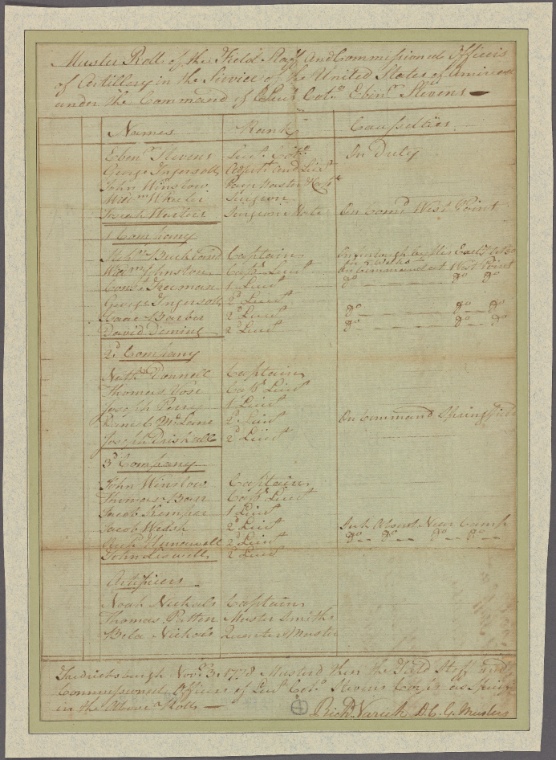 Muster Roll of the Field Staff and Commissioned Officers
of Artillery in the Service of the United States of America
under the Command of Lieut Colo Ebenr Stevens
Names Rank Casualties
Ebenr Stevens Lieut Colo On Duty
George Ingersoll Adjutt and Lieut
John Winslow Pay Master & Capt
Willm Wheeler Surgeon
Josiah Surgeon Mate On Comd West Point
1 Company
Buckland Captain
Willm Johnston Capt Lieut On Command at West Point
Freeman 1 Lieut do do do
George Ingersoll 2 Lieut
Isaac Barber 2 Lieut do do do
David Deming 2 Lieut do do do
2d Company
Nathl Donnell Captain
Thomas Vose Capt Lieut
Joseph Perry 1 Lieut
McLane 2 Lieut On Command Springfield
Joseph Driskill 2 Lieut
3d Company
John Winslow Captain
Thomas Barr Capt Lieut
Jacob Kemper 1 Lieut
Jacob Welsh 2 Lieut Sick Near Camp
Hunewell 2 Lieut do do do do
John 2 Lieut
Artificers
Noah Nichols Captain
Thomas Patten Master Smith
Bela Nichols Quarter Master
Fredricksburgh Novr 3. 1778 Musterd then the Field Staff and
Commissioned Officers of Lieut Colo Stevens Corps as
in the Above Rolls
Richd Varick D. C. G. Musters